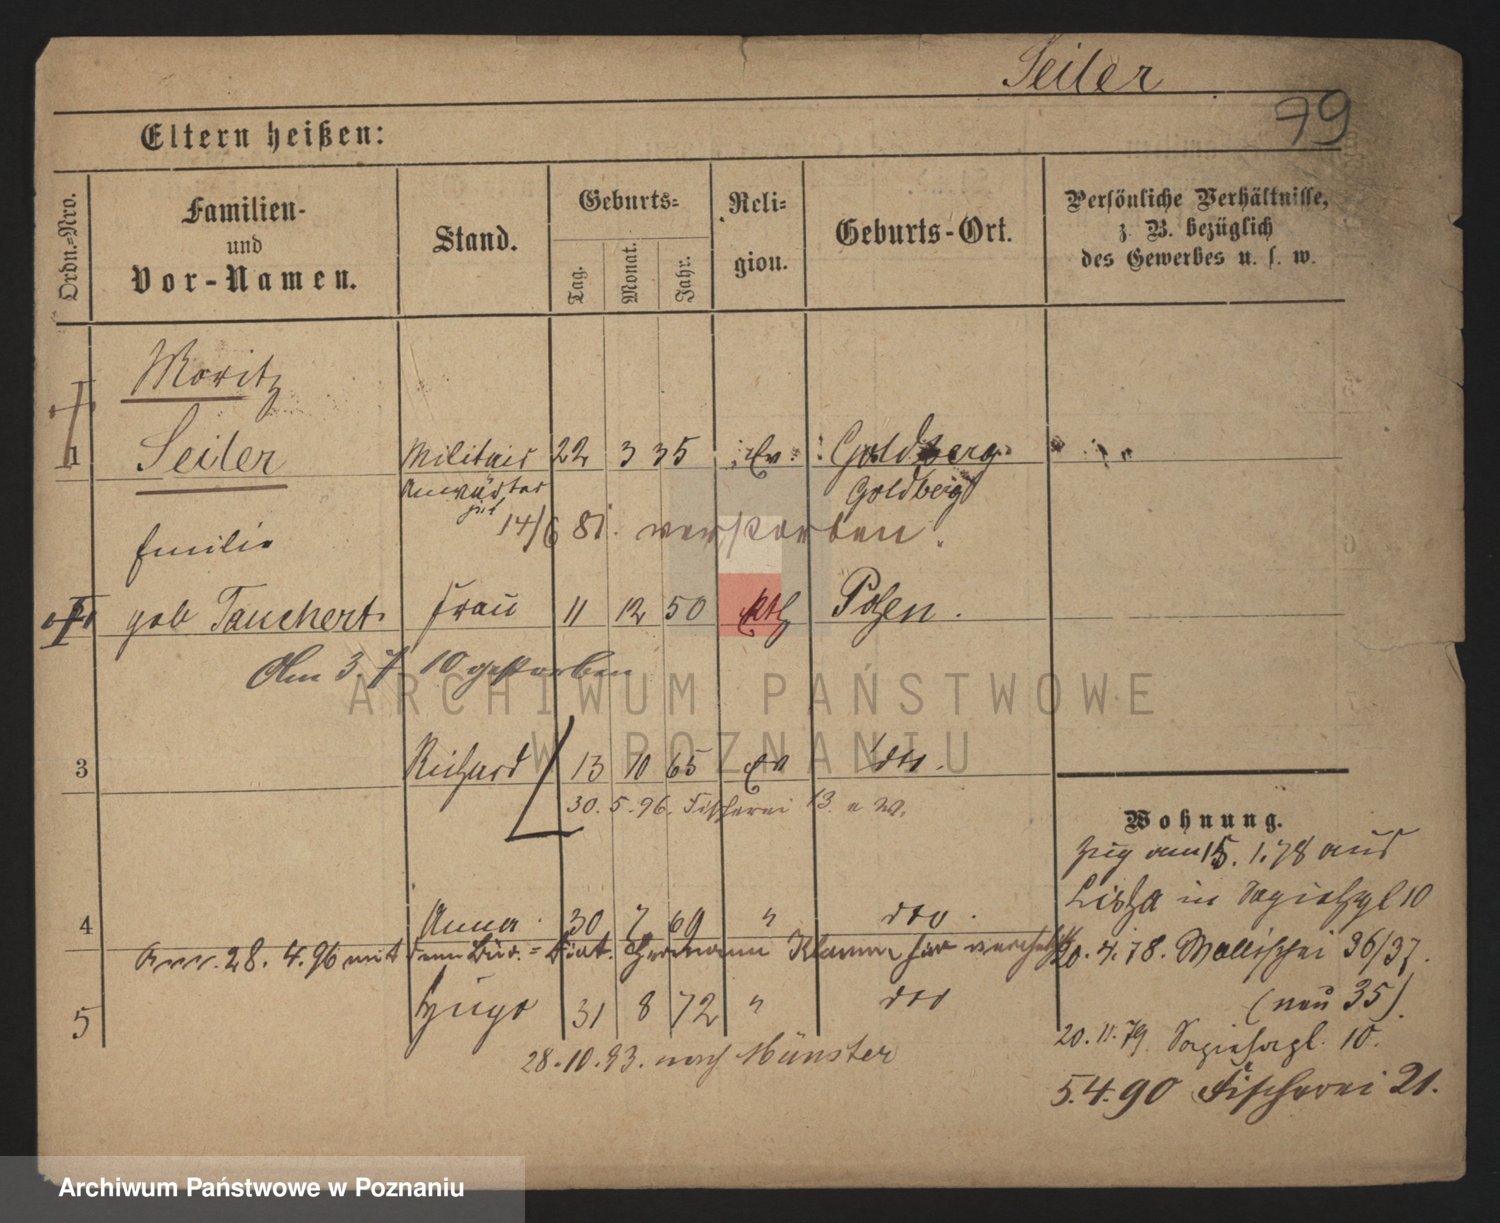 Seiler
99
Eltern heißen:
Ordn.=Nro.
Familien-
und
Vor-Namen.
Stand.
Geburts=
Tag.
Monat.
Jahr.
Reli=
gion.
Geburts-Ort.
Persönliche Verhältnisse,
z. B. bezüglich
des Gewerbes u. s. w.
Moritz
1 Seiler Militair 22 3 35 Ev. Goldberg
Anwärter Goldberg
14/6 81. verstorben.
Emilie
geb Tauchert Frau 11 12 50 kth Posen.
Am 3 7 10 gestorben
3 Richard 13 10 65 ev dto.
30. 5. 96. Fischerei 13. a W.
Wohnung.
Zug am 15. 1. 78 aus
Lissa in 10
4 Anna 30 7 69 " dto.
28. 4. 96 mit dem Hermann
20. 4. 78. Wallischei 36/37.
(neu 35)
5 Hugo 31 8 72 " dto
20. 11. 79. 10.
28. 10. 93. nach Münster
5. 4. 90 Fischerei 21.
ARCHIWUM PAŃSTWOWE
W POZNANIU
Archiwum Państwowe w Poznaniu